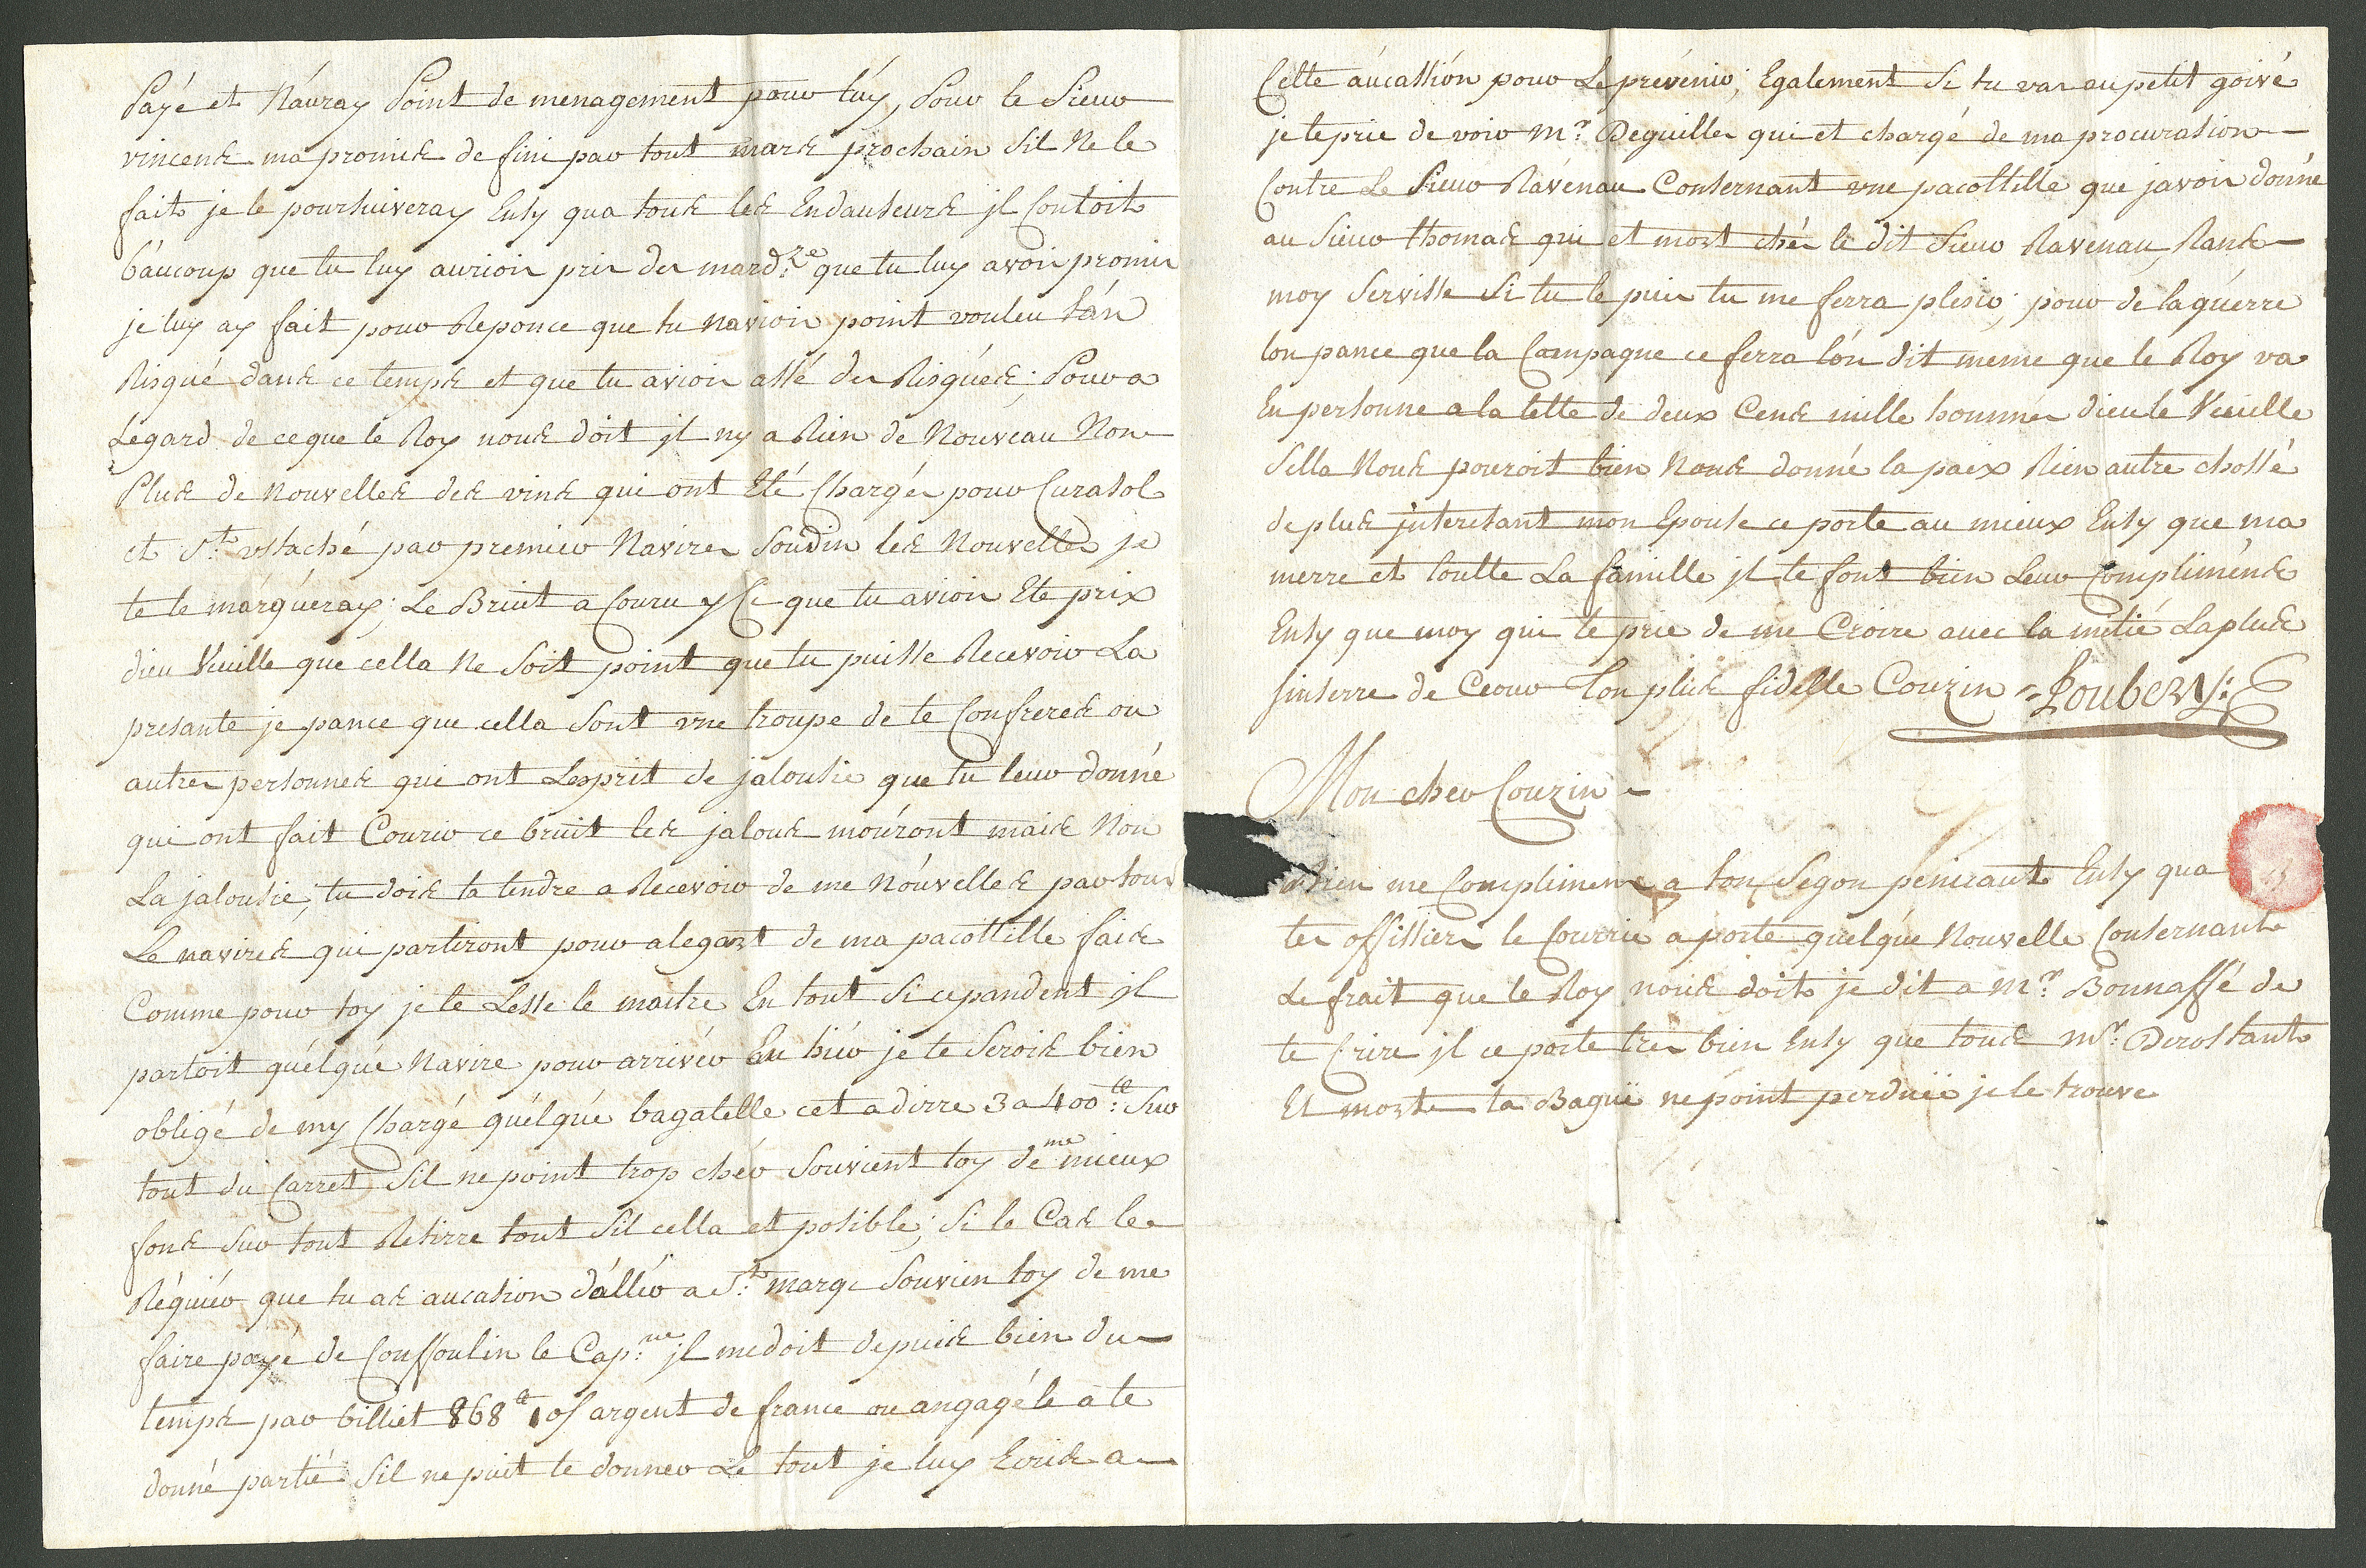 Payé et Náuray Point de menagement pour lúy, Pour le Sieur
vincens ma promis de fini par tout mars prochain Sil Ne le
fait je le pourhuiveray Ensy qua tous les Endauseurs jl Contoit
baúcoup que tu luy aurioin pris des mard.se que tu luy avois promis
je luy ay fait pour Reponce que tu navioin point vouleu tán
Risqué dans ce temps et que tu avioin assé des Risqúes; Pour a
Legard de ceque le Roy nous doit jl ny a Rien de Nouveau Non
Plus de nouvelles des vins qui ont Eté Chargés pour Curasol
et St. ustaché par premier Navires Soudin les Nouvelles je
te le márqúeray; Le Bruit a Couru y Ci que tu avioin Ete prix
dieu Veuille que cella Ne Soit point que tu puisse Recevoir La
presante je pance que cella Sont vne troupe de te Confreres ou
autres personnes qui ont Lesprit de jalousie que tu leur donné
qui ont fait Courir ce bruit les jalous moúront mais Non
La jalousie, tu dois ta tendre a Recevoir de me Nóuvelles par tous
Le navires qui partiront pour alegart de ma pacottille fais
Comme pour toy je te Lesse le maitre En tout Si cepandent jl
partoit quélqúe Navire pour arrivér En hiér je te Serois bien
obligé de my Chargé quélqúe bagatelle cet a dirre 3 a 400 tt: Sur
tout du Carret Sil ne point trop chér Souvient toy de me mieux
fons Sur tout Retirre tout Sil cella et posible; Si le Cas le
Réquiér que tu as aucasion dállér a St. marqe Souvien toy de me
faire payé de Couffoulin le Cap.ne jl me doit depuis bien du
temps par billiet 868 tt 10s argent de france ou angagé le a te
donné partié Sil ne puit te donner Le tout je luy Ecris a
Cette aúcassión pour Le prévenir; Egalement Si tu vas au petit goivé
je te prie de voir Mr. Deguilles qui et chargé de ma procuration
Contre Le Sieur Ravenau Consernant vne pacottille que javois donné
au Sieur thomas qui et mort chés le dit Sieur Ravenau, Rans
moy Servisse Si tu le puis tu me ferra plesir; pour de la guérre
lon pance que la Campagne ce ferra lón dit meme que le Roy va
En personne a la tette de deux Cens mille hommes dieu le Veuille
Sella Nous pouroit bien Nous donné la paix Rien autre chossé
de plus jnteresant mon Epouse ce porte au mieux Ensy que ma
merre et toutte La famille jl te font bien Leur Compliméns
Ensy que moy qui te prie de me Croire avec la mitié La plus
sinserre de Ceour Ton plus fidelle Couzin Loubery:
Mon cher Couzin
bien me Complimens a ton Segon Ensy qua
tes offissiers le Courrié a porte quelqúe Nouvelle Consernant
Le frait que le Roy nous doit je dit a Mr. Bonnaffé de
te Crire jl ce porte tres bien Ensy que tous Mr. Derostant
Et morte ta Baguë ne point perduëe je le trouve